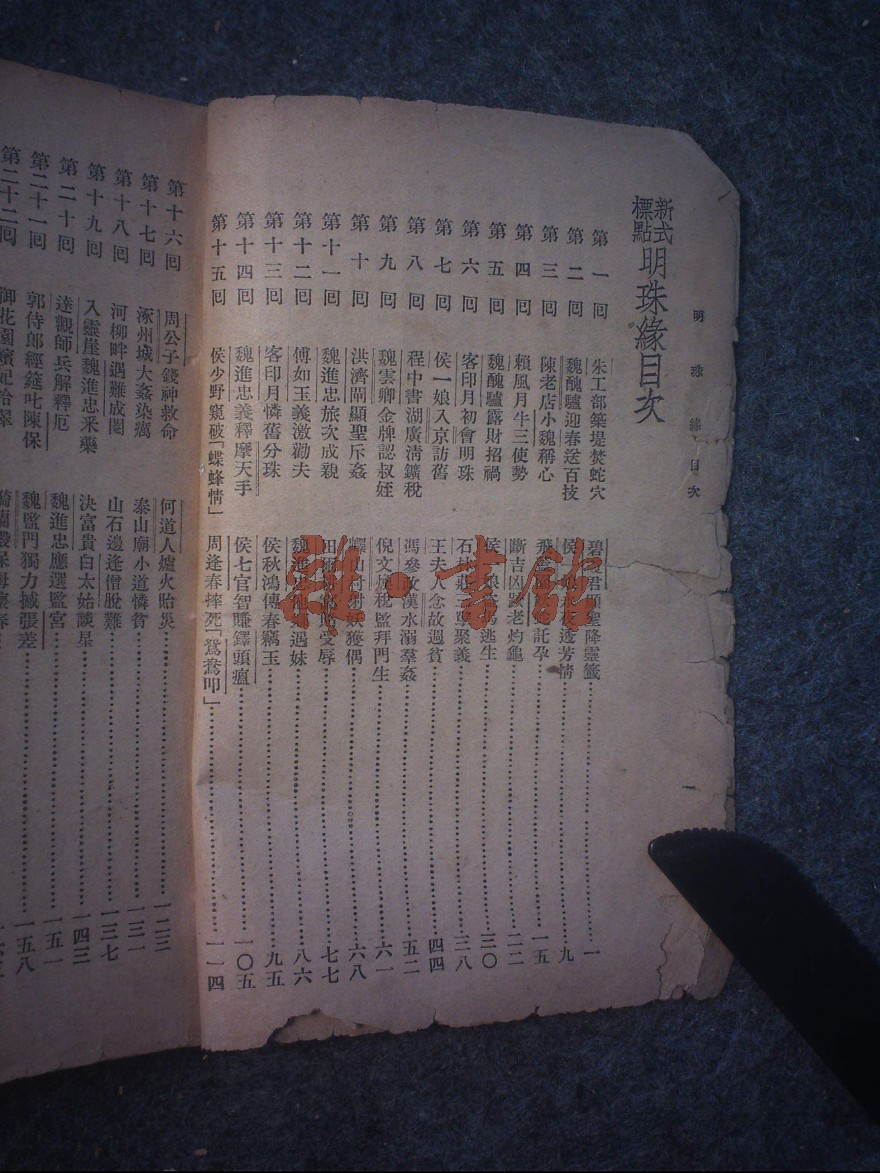 明珠緣目次
新式標點 明珠緣目次
第一回 朱工部築堤焚蛇穴 碧 君 聖降靈籤 一
第二回 魏醜驢迎春送百技 侯 夜透芳情 九
第三回 陳老店小魏稱心 飛 託孕 一五
第四回 賴風月牛三使勢 斷吉凶跛老灼龜 二二
第五回 魏醜驢露財招禍 侯一娘 逃生 三〇
第六回 客印月初會明珠 石林莊三 聚義 三八
第七回 侯一娘入京訪舊 王夫人念故週貧 四四
第八回 程中書湖廣清鑛稅 馮參政漢水溺羣姦 五二
第九回 魏雲卿金牌認叔姪 倪文煥稅監拜門生 六一
第十回 洪濟閘顯聖斥姦 嶧山村射妖獲偶 六八
第十一回 魏進忠旅次成親 田爾耕 受辱 七七
第十二回 傅如玉義激勸夫 魏進忠 遇妹 八六
第十三回 客印月憐舊分珠 侯秋鴻傳春竊玉 九五
第十四回 魏進忠義釋摩天手 侯七官智賺鐸頭瘟 一〇五
第十五回 侯少野窺破「蝶蜂情」 周逢春摔死「鴛鴦叩」 一一四
第十六回 周公子錢神救命 何道人爐火貽災 一二三
第十七回 涿州城大姦染癘 泰山廟小道憐貧 一三一
第十八回 河柳畔遇難成閹 山石邊逢僧脫難 一三七
第十九回 入靈崖魏進忠釆藥 決富貴白太始談星 一四三
第二十回 達觀師兵解釋厄 魏進忠應選監宮 一五一
第二十一回 郭侍郎經筵叱陳保 魏監門獨力撼張差 一五八
第二十二回 御花園嬪妃拾翠